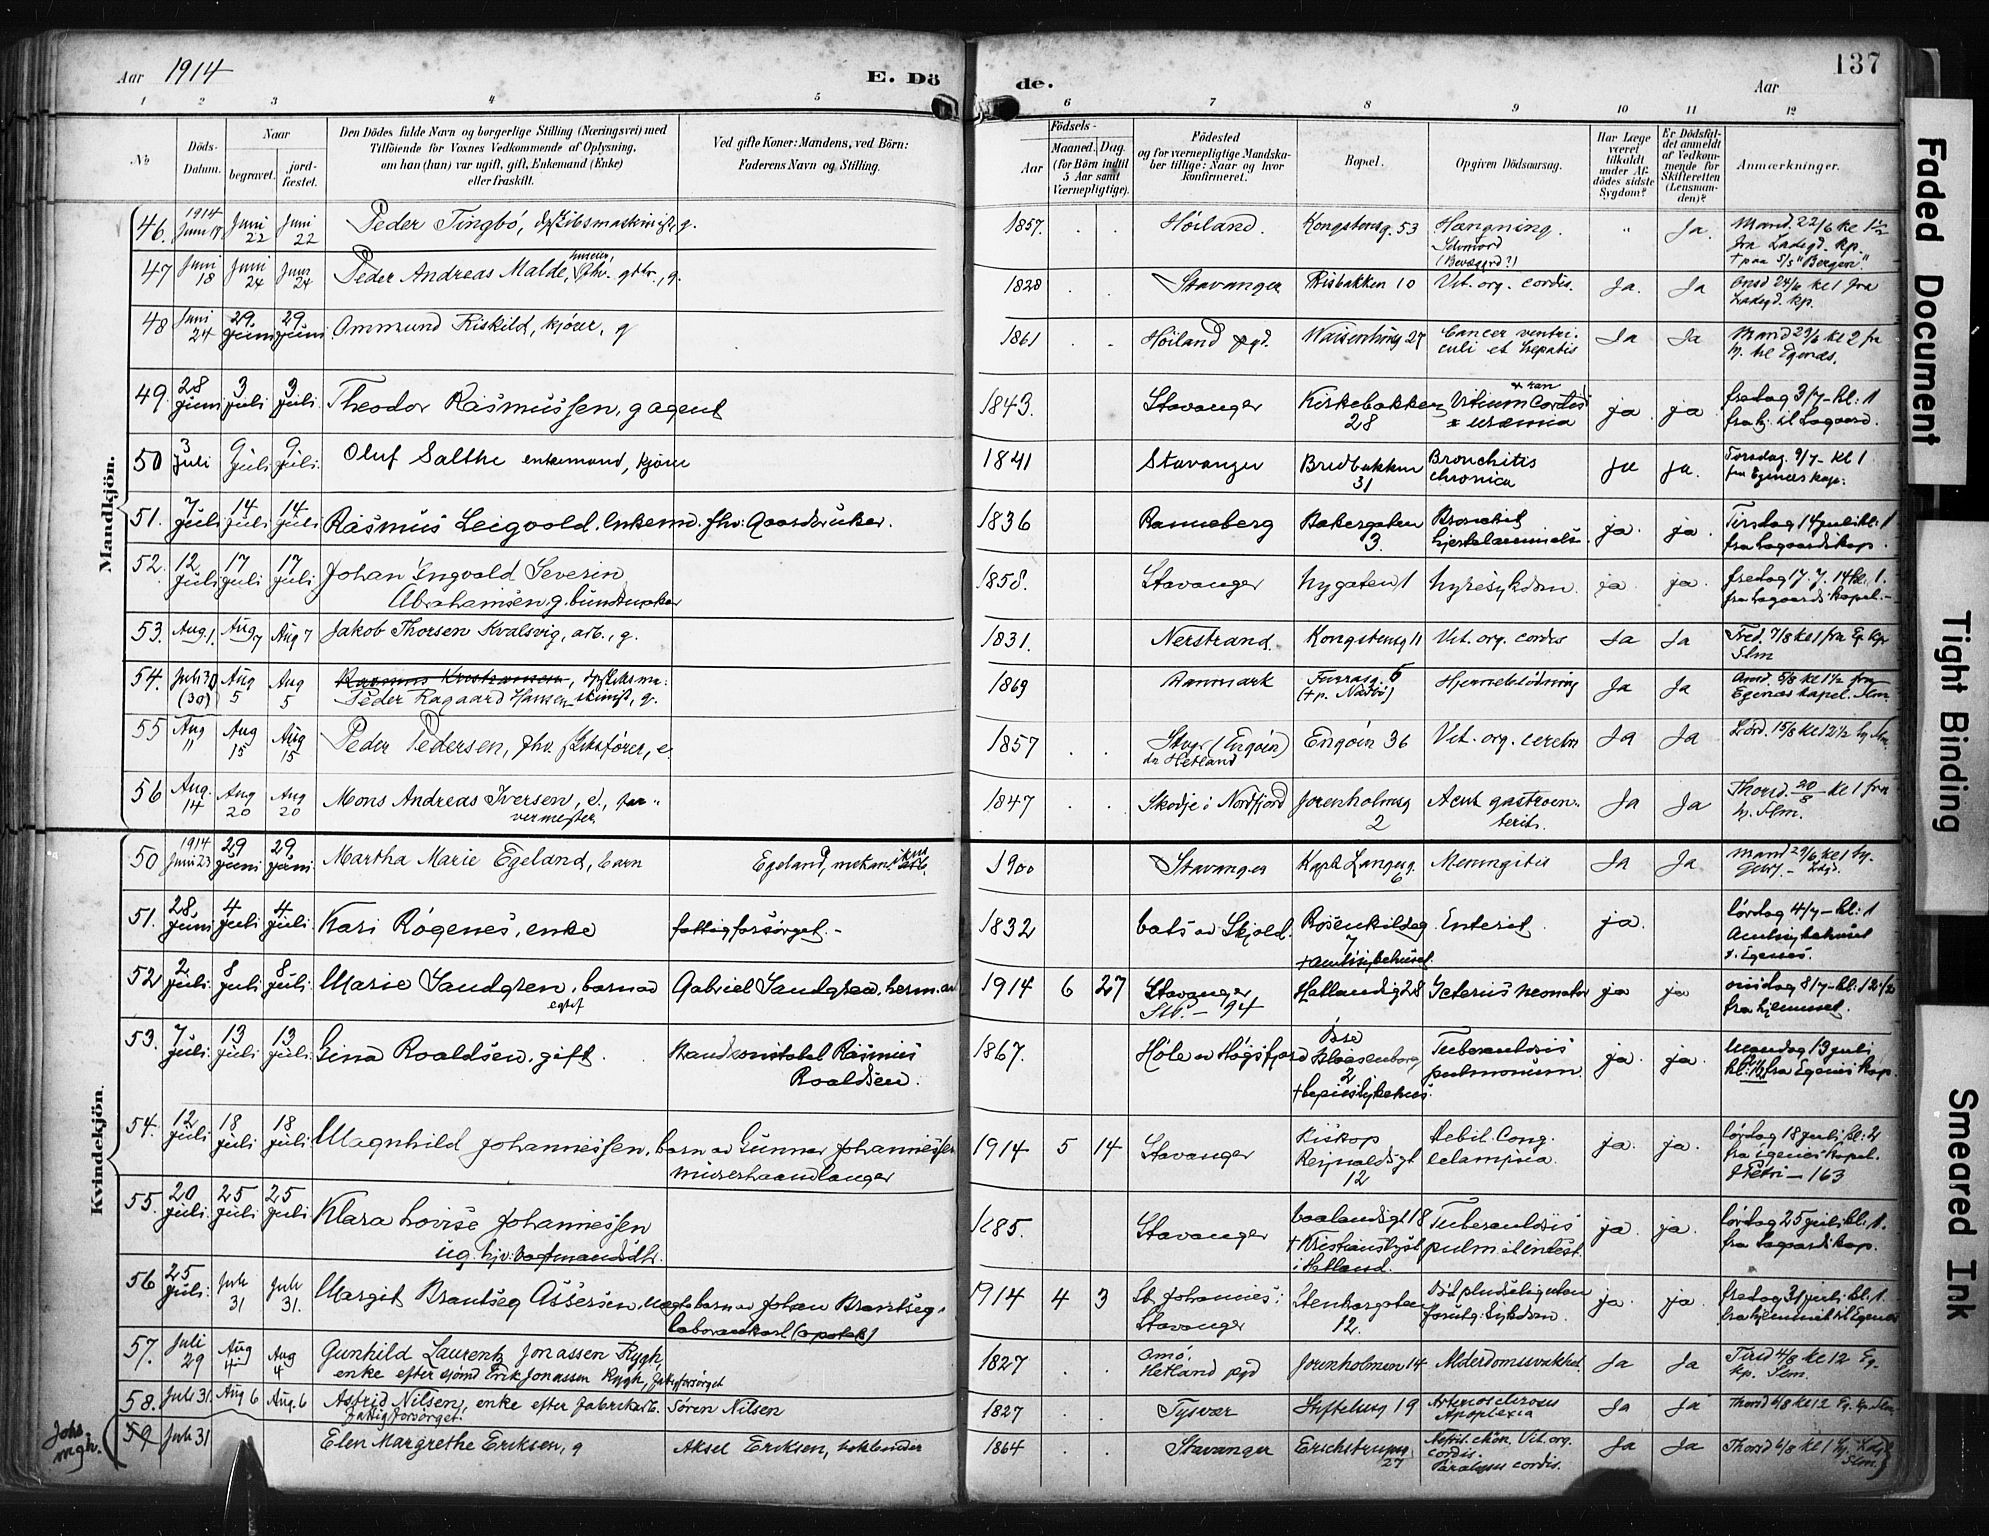 Aar 1914
E. Dö
de.
Aar
137
1 2 3 4 5 6 7 8 9 10 11 12
No
Döds-
Datum.
Naar
begravet.
jord-
fæstet.
Den Dödes fulde Navn og borgerlige Stilling (Næringsvei) med
Tilföiende for Voxnes Vedkommende af Oplysning,
om han (hun) var ugift, gift, Enkemand (Enke)
eller fraskilt.
Ved gifte Koner: Mandens, ved Börn:
Faderens Navn og Stilling.
Födsels-
Aar
Maaned. Dag.
(for Börn indtil
5 Aar samt
Værnepligtige).
Födested
og for værnepligtige Mandska-
ber tillige: Naar og hvor
konfirmeret.
Bopæl.
Opgiven Dödsaarsag.
Har Læge
været
tilkaldt
under Af-
dödes sidste
Sygdom?
Er Dödsfal-
det anmeldt
af Vedkom-
mende for
Skifteretten
(Lensman-
den)?
Anmærkninger.
Mandkjön.
46. 1914 Juni 17 Juni 22 Juni 22 Peder Tingbø, g. 1857. Høiland. Kongsteinsg. 53 Hængning. " Ja. Mand. 22/6 kl 1½
Selvmord fra Ladegd. kp.
+ paa 5/5 "Bergen".
47 Juni 18 Juni 24 Juni 24 Peder Andreas Malde, fhv. gbr., g. 1828 Stavanger Risbakken 10 Vit. org. cordis. Ja. Ja Onsd 24/6 kl 1 fra
Ladegd. kp.
48 Juni 24 29 Juni 29 Juni Ommund Riskild, kjører, g 1861 Høiland pgd. Waisenhusg 27 Cancer ventri- Ja Ja Mand 29/6 kl 2 fra
culi et hepatis hj. til Egenæs.
49. 28 Juni 3 Juli 3 Juli Theodor Rasmussen. g agent 1843. Stavanger Kirkebakken Vitium Cordis ja ja fredag 3/7 - kl: 1
28 uræmia fra hj. til Lagaard.
50 3 Juli 9 Juli 9 Juli Oluf Salthe enkemand, kjører 1841 Stavanger Bredbakken Bronchitis ja ja. Torsdag. 9/7 - kl 1
31 chronica fra Egenes kap:
51. 7 Juli 14 Juli 14 Juli Rasmus Leigvold. Enkem. fhv: Gaardbruker. 1836 Ranneberg Bakergaten Bronchit ja. ja. Tirsdag 14 juli kl: 1
3. hjertelammelse. fra Lagaards kap.
52. 12 Juli 17 Juli 17 Juli Johan Ingvald Severin 1858. Stavanger Nygaten 1 Nyresykdom. ja. ja. fredag 17. 7. 14 kl. 1.
Abrahamsen. g. buntmaker fra Lagaards kapel. -
53. Aug. 1. Aug 7 Aug 7 Jakob Thorsen Kvalsvig, arb., g. 1831. Nerstrand. Kongsteinsg 11 Vit. org. cordis Ja Ja Fred. 7/8 kl 1 fra Eg. kp
Slm
54. Juli 30 (30) Aug 5 Aug 5 Rasmus Kristiansen, 1869 Danmark 6 Hjerneblødning Ja Ja Onsd. 5/8 kl 1½ fra
Peder Ragaard Hansen g. Egenæs kapel. Slm.
55 Aug 11 Aug 15 Aug 15 Peder Pedersen, fhv. skibsfører, e. 1857 Stvgr (Engøen) Engøen 36 Vit. org. cerebri Ja Ja Lørd. 15/8 kl 12½ hj. Slm.
Hetland
56 Aug. 14 Aug 20 Aug 20 Mons Andreas Iversen, e., far- 1847 Skodje i Nordfjord Jorenholmeng Acut gastroen- Ja Ja Thorsd. 20/8 kl 1 fra
vermester 2 terit. hj. Slm.
Kvindekjön
50 1914 Juni 23 29 Juni 29 Juni Martha Marie Egeland, barn Egeland, mekan. 1900 Stavanger Kapt Langesg. 6 Meningitis Ja Ja Mand 29/6 kl 1 hj.
51. 28 Juni 4 Juli 4 Juli Kari Røgenes. enke fattigforsørget. - 1832 Vats av Skjold. Rosenkildeg Enterit. ja. lørdag 4/7 - kl: 1
7 Amtssykehuset
+ amtssykehuset. t. Egenes.
52 2 Juli. 8 Juli 8 Juli. Marie Sandgren. barn av Gabriel Sandgren. herm. arb 1914 6 27 Stavanger Hetlandsg 28 Icterus neonator ja ja onsdag 8/7 - kl: 12 1/2
egtef St. P. - 94 fra hjemmet.
53. 7 Juli. 13 Juli 13 Juli Gina Roaldsen. gift. Havnekonstabel Rasmus 1867. Høle av Høgsfjord Øvre Tuberculosis ja ja. Mandag 13 juli
Roaldsen. Blaasenborg 2 pulmonum. kl: 1½ fra Egenes Kap.
54. 12 Juli. 18 Juli 18 Juli Magnhild Johannessen. barn av Gunnar Johannessen 1914 5 14 Stavanger Biskop Debil. Cong. ja. ja. lørdag 18 juli kl: 2
murerhaandlanger Reinaldsgt eclampsia. fra Egenes Kapel.
12 St Petri - 163
55. 20 Juli. 25 Juli 25 Juli Klara Lovise Johannessen 1885. Stavanger Vaalandsgt 18 Tuberculosis ja. ja. lørdag 25 juli kl: 1.
ug. hjv: vagtmandsdtr. + Kristianslyst pulm. et intest. fra Lagaards kap.
i Hetland.
56 25 Juli. Juli 31 Juli 31. Margit Brautseg Assersen. uegte barn av Johan Brautseg, 1914 4 3 St. Johannes: Stenhorgaten Død pludselig uten ja. ja. fredag 31 juli kl: 1. -
laborankarl (apotek) Stavanger 12. forutg. Sykdom. fra hjemmet til Egenes
57. Juli 29 Aug 4 Aug 4 Gunhild Laurentz Jonassen Rygh, 1827 Amø, Jorenholmen 14 Alderdomssvakhet Ja Ja Tirsd 4/8 kl 12 Eg.
enke efter sjømd Erik Jonassen Rygh, fattigforsørget Hetland pgd kp. Slm.
58. Juli 31. Aug 6 Aug. 6 Astrid Nilsen, enke efter fabrikarb. Søren Nilsen 1827 Tysvær Stiftelsesg 19 Arteriosclerosis Ja Ja Thorsd 6/8 kl 12 Eg. kp. Slm
fattigforsørget. Apoplexia
59 Juli 31 Elen Margrethe Eriksen, g Aksel Eriksen, 1864 Stavanger Erichstrupsg 27 Nefrit. chron. Vit. org. Ja Ja Thorsd 6/8 kl 1 hj.
cordis. Slm.
Paralysis cordis.
Joh.
mgh.
Faded Document
Tight Binding
Smeared Ink